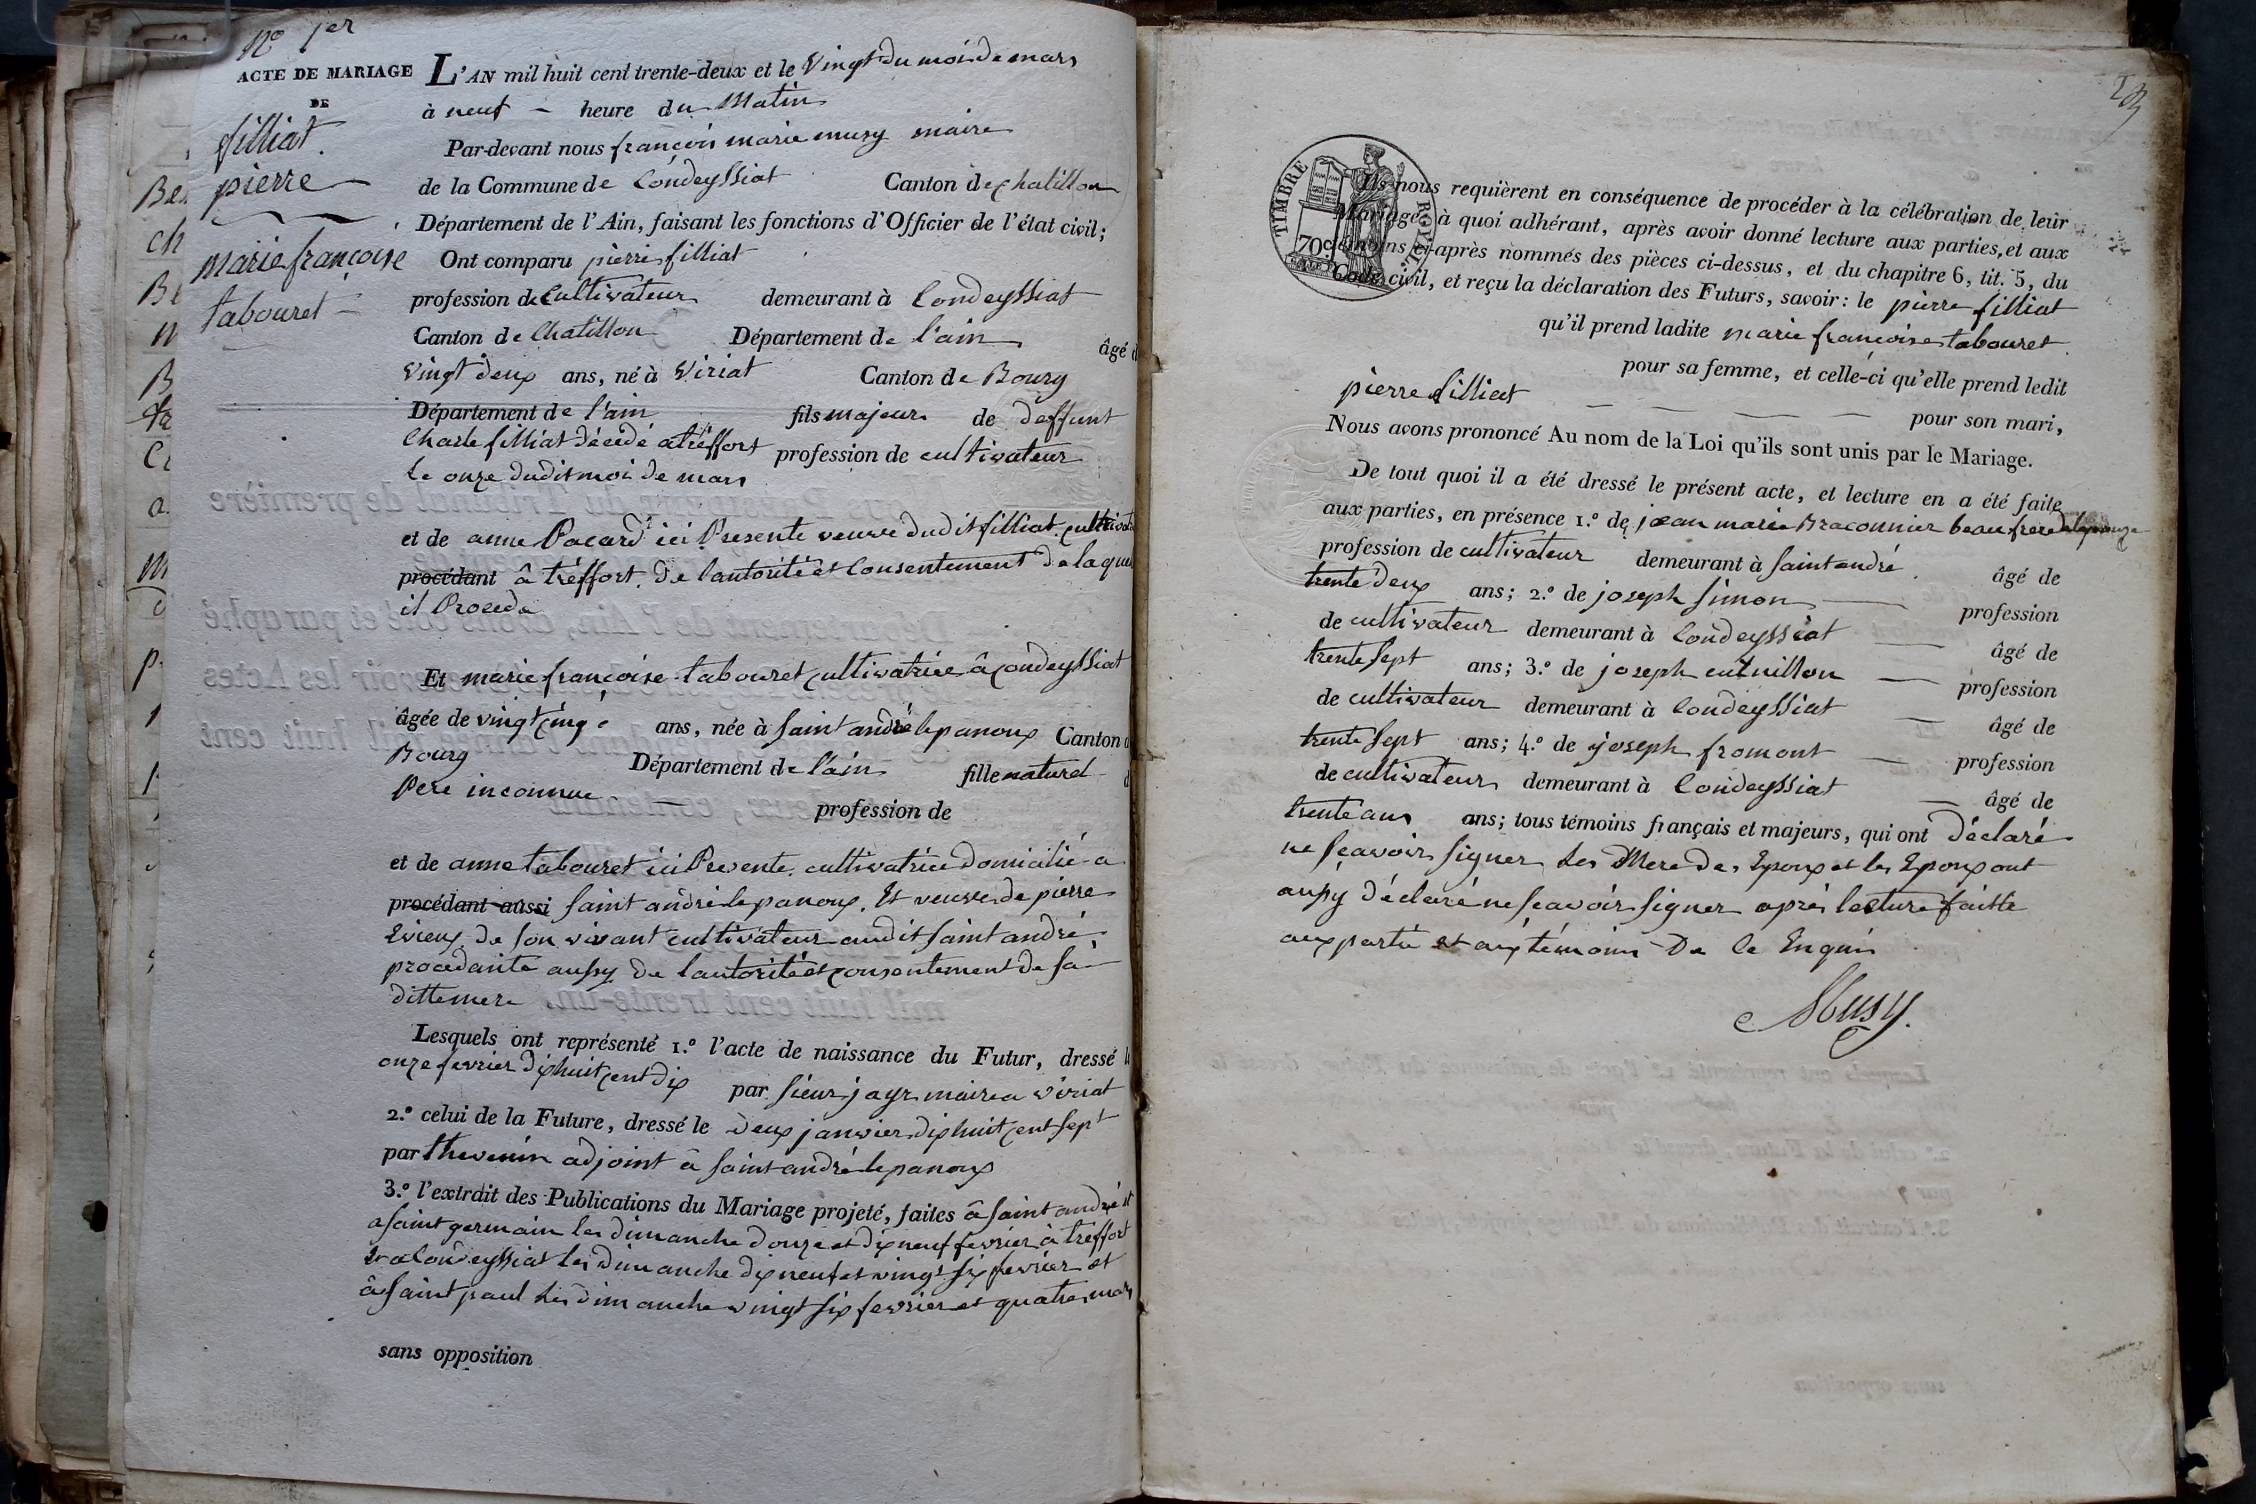 No 1er
ACTE DE MARIAGE
DE
filliat
pierre
marie françoise
tabouret
L'AN mil huit cent trente-deux et le vingt du mois de mars
à neuf heure du matin
Par-devant nous françois marie musy maire
de la Commune de Condeyssiat Canton de chatillon
Département de l'Ain, faisant les fonctions d'Officier de l'état civil;
Ont comparu pierre filliat
profession de Cultivateur demeurant à Condeyssiat
Canton de Chatillon Département de l'ain âgé d
vingt deux ans, né à Viriat Canton de Bourg
Département de l'ain fils majeur de deffunt
Charle filliat décédé a tréffort profession de cultivateur
le onze dudit moi de mars
et de anne Pacard ici Presente veuve dudit filliat cultivat
procédant à tréffort. De lautorité et Consentement de laquel
il Procede
Et marie françoise tabouret cultivatrice à Condeyssiat
âgée de vingt cinq ans, née à saint andré lepanoux Canton d
Bourg Département de l'ain fille naturel d
Pere inconnue profession de
et de anne tabouret ici Presente cultivatrice domicilié a
procédant aussi saint andré le panoux. Et veuve de pierre
Evieux de son vivant cultivateur audit saint andré
procedante aussy de lautorité et consentement de sa
ditte mere
Lesquels ont représenté 1.º l'acte de naissance du Futur, dressé le
onze fevrier dixhuit cent dix par sieur jayr maire a viriat
2.º celui de la Future, dressé le deux janvier dixhuit cent sept
par thevenin adjoint à saint andré lepanoux
3.º l'extrait des Publications du Mariage projeté, faites à saint andré et
a saint germain les dimanche douze et dix neuf fevrier à tréffort
et a Condeyssiat les dimanche dix neuf et vingt six fevrier et
à saint paul les dimanche vingt six fevrier et quatre mars
sans opposition
TIMBRE ROYAL
70 c
Ils nous requièrent en conséquence de procéder à la célébration de leur
Mariage, à quoi adhérant, après avoir donné lecture aux parties, et aux
témoins ci-après nommés des pièces ci-dessus, et du chapitre 6, tit. 5, du
Code civil, et reçu la déclaration des Futurs, savoir: le pierre filliat
qu'il prend ladite marie françoise tabouret
pour sa femme, et celle-ci qu'elle prend ledit
pierre filliat pour son mari,
Nous avons prononcé Au nom de la Loi qu'ils sont unis par le Mariage.
De tout quoi il a été dressé le présent acte, et lecture en a été faite
aux parties, en présence 1.º de jean marie Braconnier beau frere de lepouze
profession de cultivateur demeurant à saint andré âgé de
trente deux ans; 2.º de joseph simon profession
de cultivateur demeurant à Condeyssiat âgé de
trente sept ans; 3.º de joseph cutuillon profession
de cultivateur demeurant à Condeyssiat âgé de
trente sept ans; 4.º de joseph fromont profession
de cultivateur demeurant à Condeyssiat âgé de
trente ans ans; tous témoins français et majeurs, qui ont déclaré
ne sçavoir signer les Mere des Epoux et les Epoux ont
aussy déclaré ne sçavoir signer après lecture faitte
aux partie et aux témoins De ce Enquis
Musy.